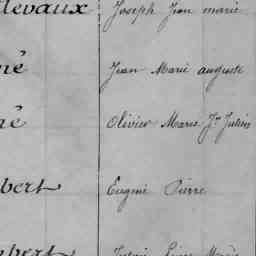 levaux Joseph Jean marie
né Jean Marie auguste
né Olivier Marie Jn Julien
bert Eugène Pierre
bert